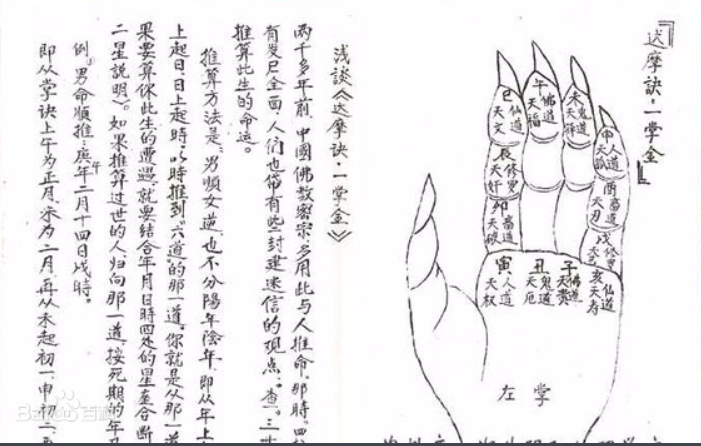 『达摩訣·一掌金』
巳 仙道 天文
午 佛道 天福
未 鬼道 天驛
申 人道 天孤
辰 修罗 天奸
酉 畜道 天刃
卯 畜道 天破
戌 修罗
寅 人道 天权
丑 鬼道 天厄
子 佛道 天贵
亥 仙道 天寿
左掌
浅談《达摩訣·一掌金》
两千多年前、中國佛教密宗、多用此与人推命。那時。四
有发已全面、人们也帶有些封建迷信的观点。查。三
推算此生的命运。
推算方法是、男順女逆、也不分陽年陰年、即从年上
上起日、日上起時。以時推到"六道"的那一道。你就是从那一道
果要算你此生的遭遇、就要結合年月日時四处的星座合断
二星説明》。如果推算过世的人、归向那一道、按死期的年
例。男命順推:庚午年二月十四日戌時。
即从掌訣上午为正月、未为二月、再从未起初一、申初二、
Baidu百科